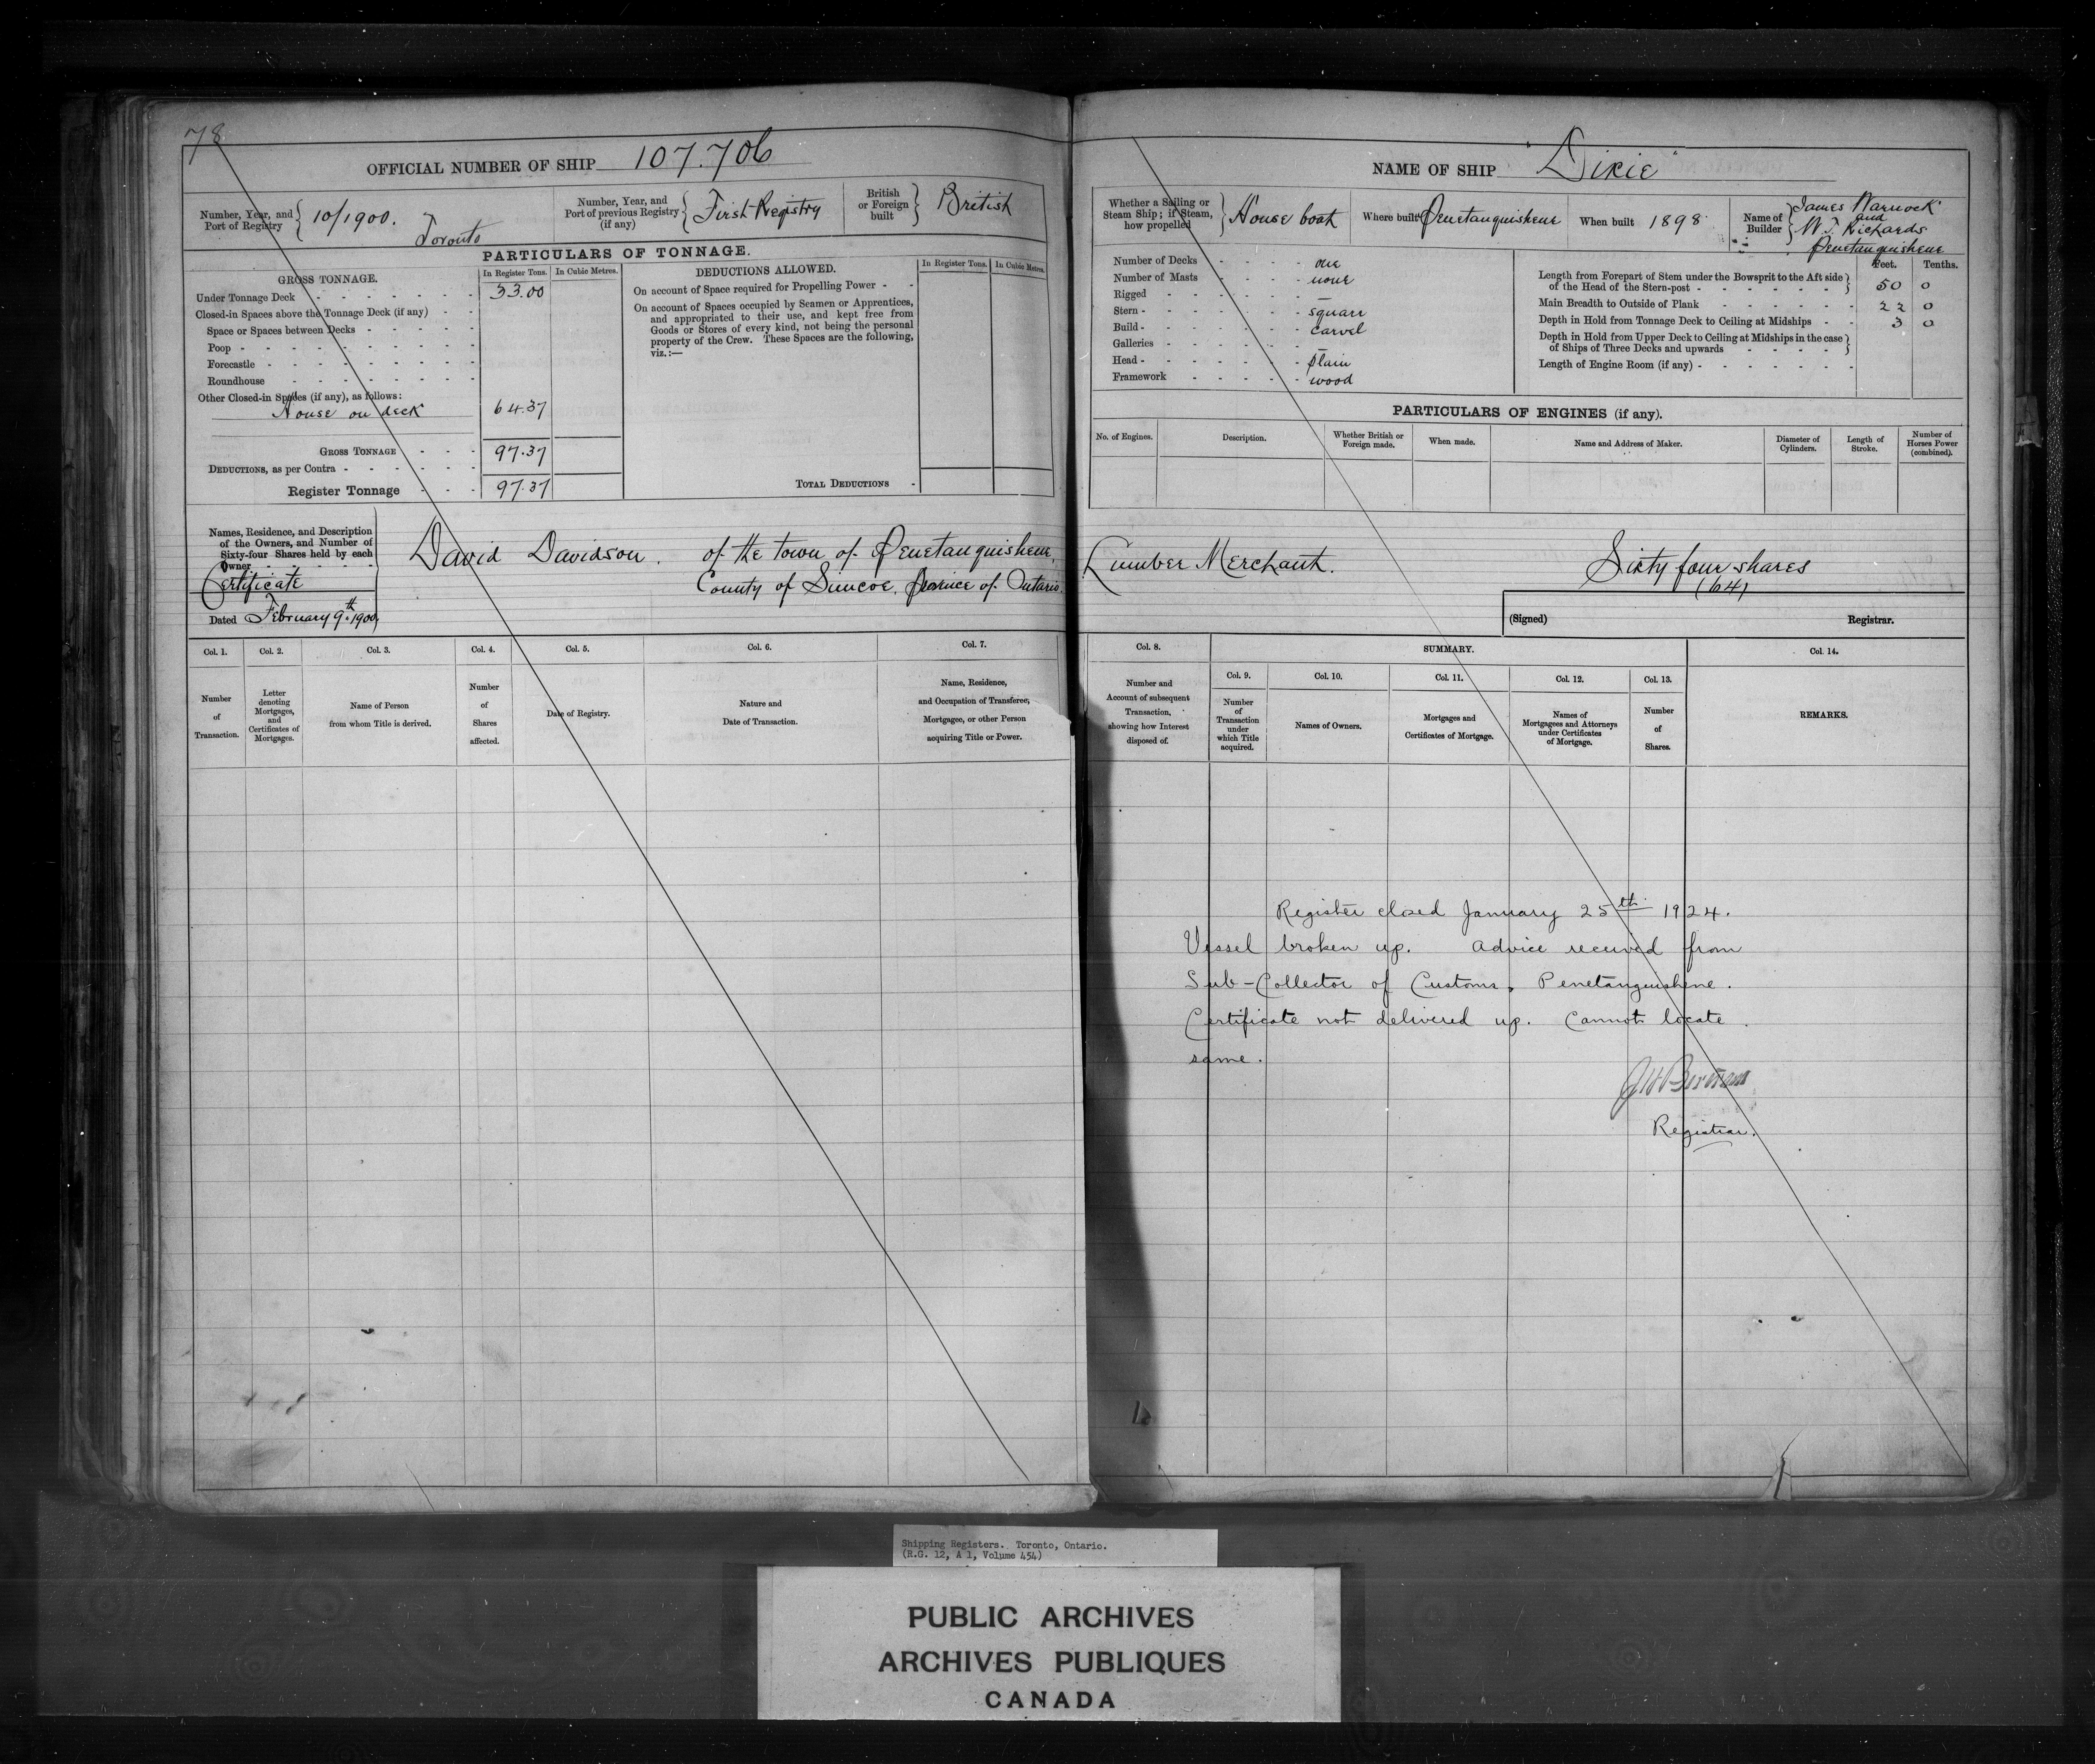 78
OFFICIAL NUMBER OF SHIP 107.706
Number, Year, and Port of Registry 10/1900. Toronto
Number, Year, and Port of previous Registry (if any) First Registry
British or Foreign built British
PARTICULARS OF TONNAGE.
GROSS TONNAGE. In Register Tons. In Cubic Metres.
Under Tonnage Deck 33.00
Closed-in Spaces above the Tonnage Deck (if any)
Space or Spaces between Decks
Poop
Forecastle
Roundhouse
Other Closed-in Spaces (if any), as follows:
House on deck 64.37
GROSS TONNAGE 97.37
DEDUCTIONS, as per Contra
Register Tonnage 97.37
DEDUCTIONS ALLOWED. In Register Tons. In Cubic Metres.
On account of Space required for Propelling Power
On account of Spaces occupied by Seamen or Apprentices,
and appropriated to their use, and kept free from
Goods or Stores of every kind, not being the personal
property of the Crew. These Spaces are the following,
viz.:—
TOTAL DEDUCTIONS
Names, Residence, and Description
of the Owners, and Number of
Sixty-four Shares held by each
Owner
Certificate
Dated February 9th 1900
David Davidson. of the town of Penetanguishene,
County of Simcoe, Province of Ontario.
Col. 1. Col. 2. Col. 3. Col. 4. Col. 5. Col. 6. Col. 7.
Number of Transaction.
Letter denoting Mortgages, and Certificates of Mortgages.
Name of Person from whom Title is derived.
Number of Shares affected.
Date of Registry.
Nature and Date of Transaction.
Name, Residence, and Occupation of Transferee, Mortgagee, or other Person acquiring Title or Power.
NAME OF SHIP "Dixie"
Whether a Sailing or Steam Ship; if Steam, how propelled House boat
Where built Penetanguishene
When built 1898
Name of Builder James Warnock and W. J. Richards Penetanguishene
Number of Decks one
Number of Masts none
Rigged —
Stern square
Build carvel
Galleries —
Head plain
Framework wood
Feet. Tenths.
Length from Forepart of Stem under the Bowsprit to the Aft side
of the Head of the Stern-post 50 0
Main Breadth to Outside of Plank 22 0
Depth in Hold from Tonnage Deck to Ceiling at Midships 3 0
Depth in Hold from Upper Deck to Ceiling at Midships in the case
of Ships of Three Decks and upwards
Length of Engine Room (if any)
PARTICULARS OF ENGINES (if any).
No. of Engines. Description. Whether British or Foreign made. When made. Name and Address of Maker. Diameter of Cylinders. Length of Stroke. Number of Horses Power (combined).
Lumber Merchant. Sixty four shares
(64)
(Signed) Registrar.
Col. 8. SUMMARY. Col. 14.
Col. 9. Col. 10. Col. 11. Col. 12. Col. 13.
Number and Account of subsequent Transaction, showing how Interest disposed of.
Number of Transaction under which Title acquired.
Names of Owners.
Mortgages and Certificates of Mortgage.
Names of Mortgagees and Attorneys under Certificates of Mortgage.
Number of Shares.
REMARKS.
Register closed January 25th 1924.
Vessel broken up. Advice received from
Sub-Collector of Customs, Penetanguishene.
Certificate not delivered up. Cannot locate
same.
J H Bertram
Registrar.
Shipping Registers. Toronto, Ontario.
(R.G. 12, A 1, Volume 454)
PUBLIC ARCHIVES
ARCHIVES PUBLIQUES
CANADA